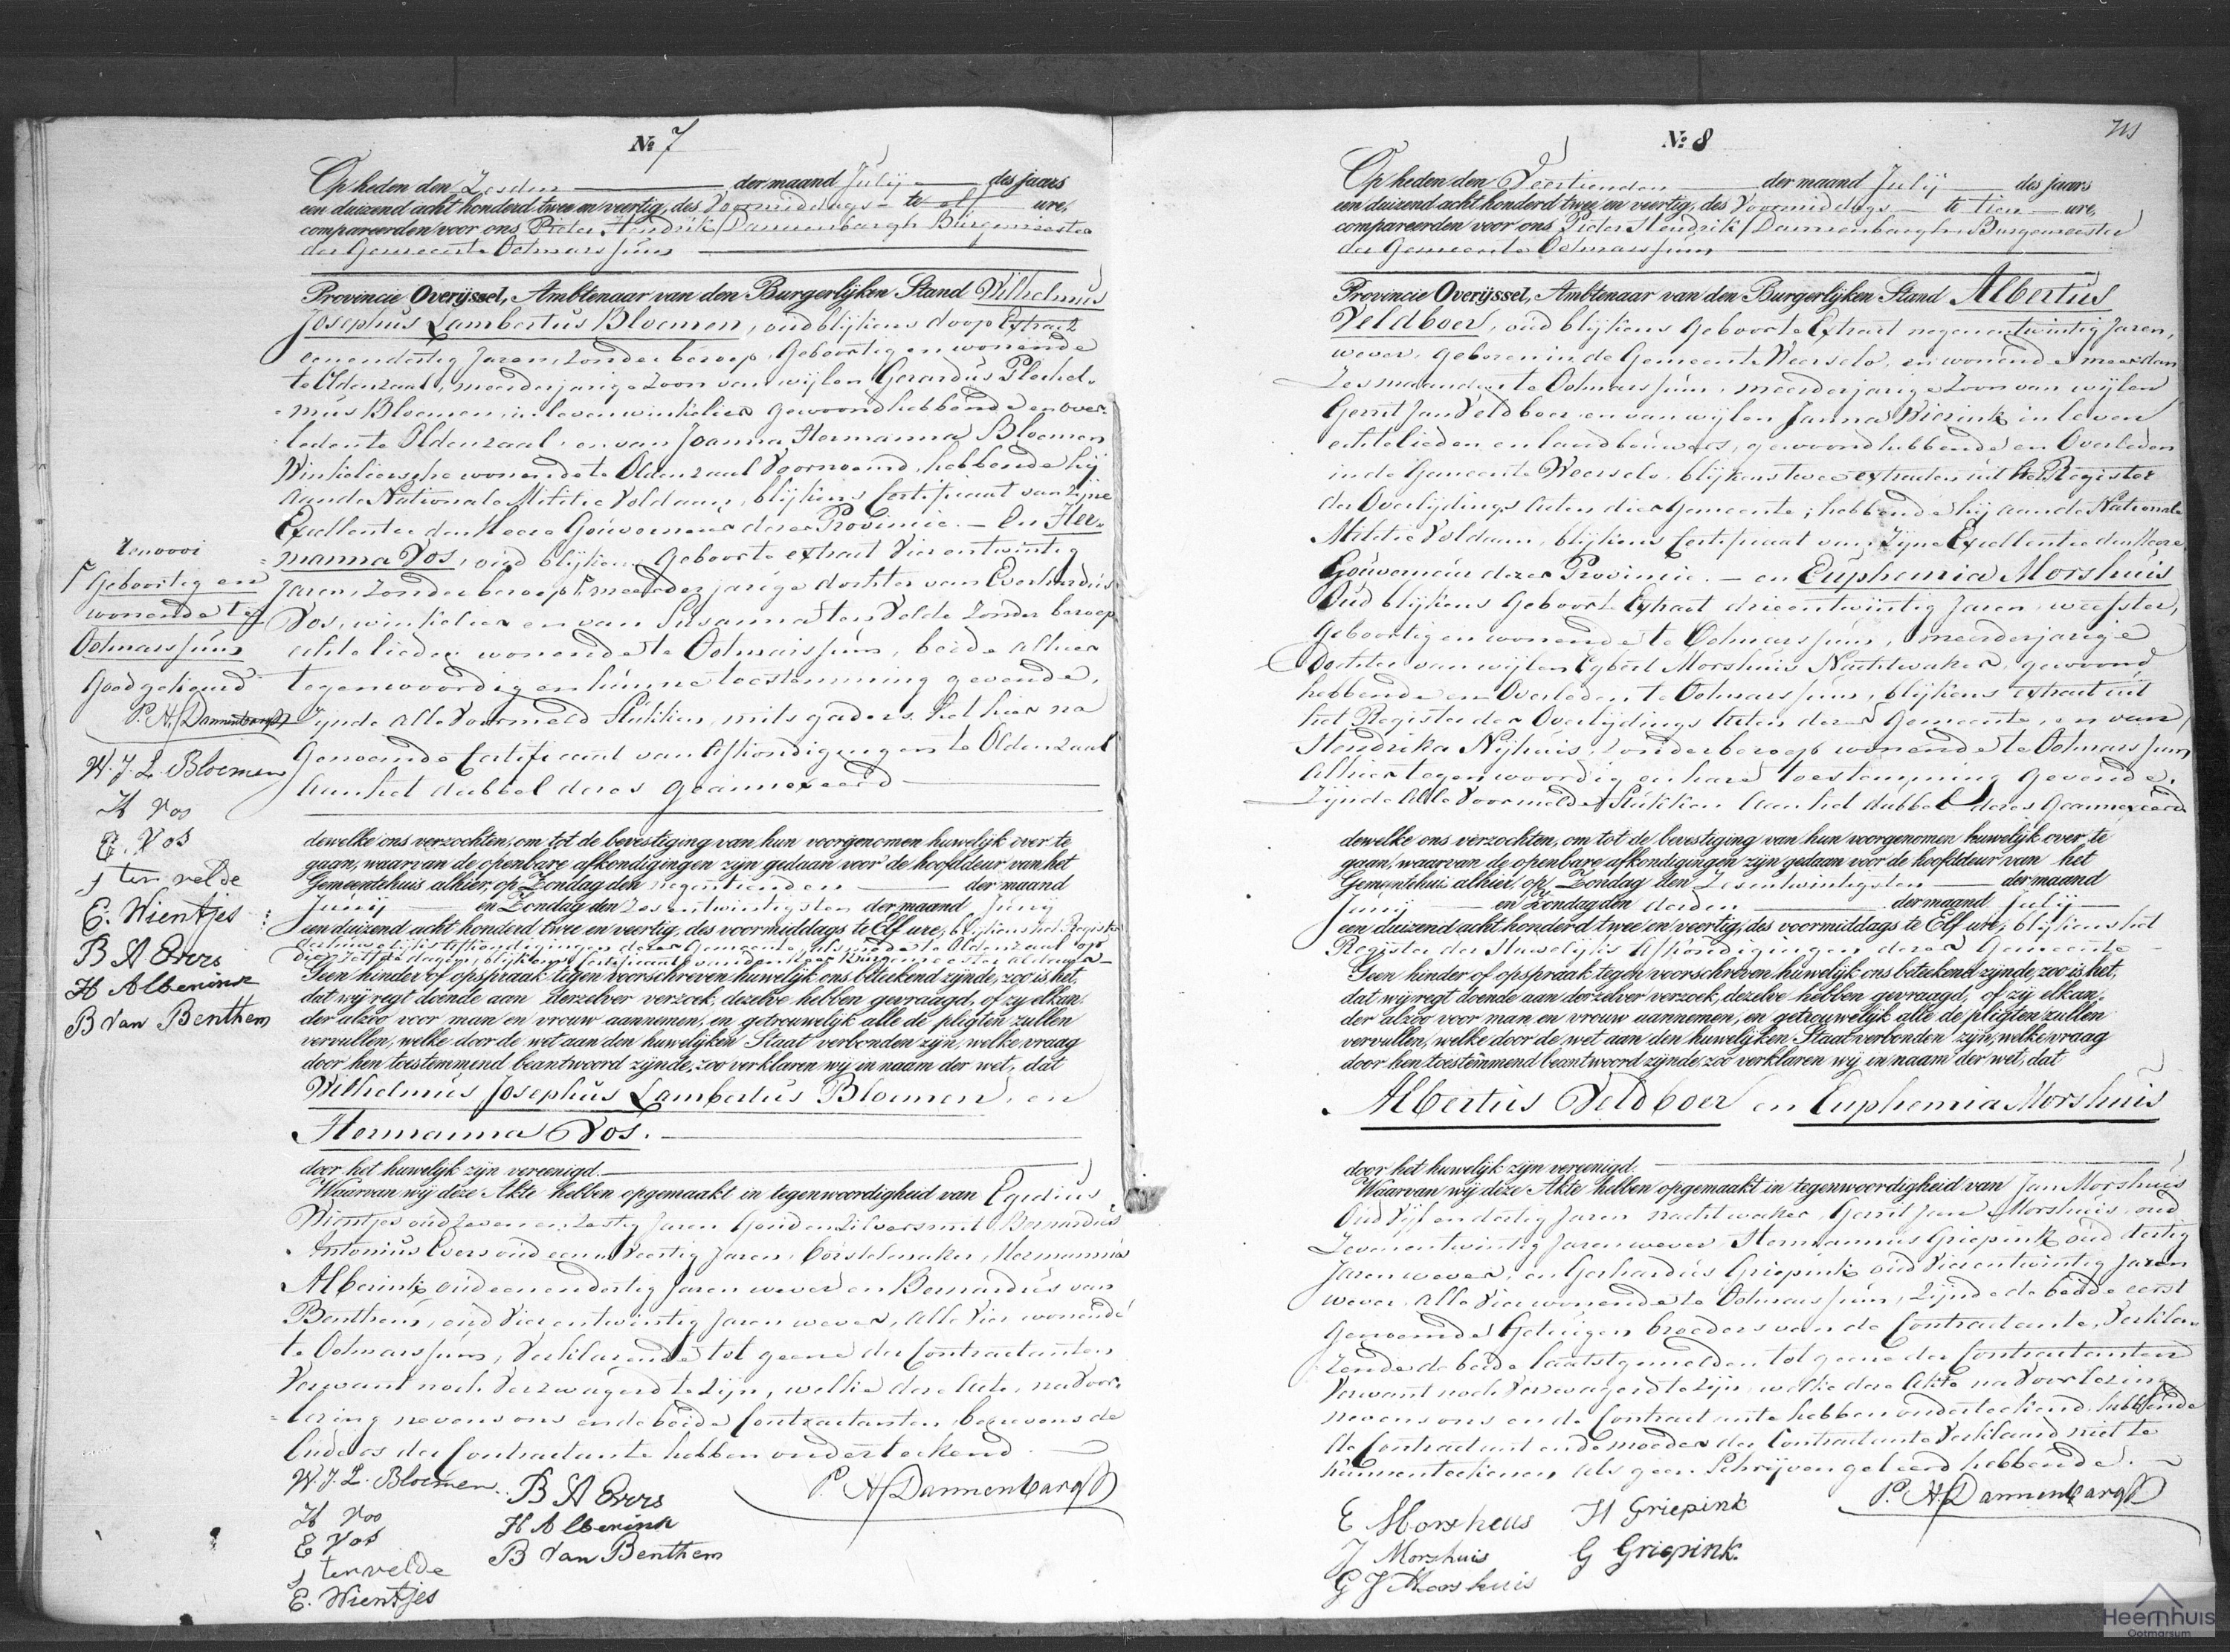 № 7
Op heden den Zesden der maand Julij des jaars
een duizend acht honderd twee en veertig, des Voormiddags te elf ure,
compareerden voor ons Pieter Hendrik Dannenbargh Burgemeester
der Gemeente Ootmarssum
Provincie Overijssel, Ambtenaar van den Burgerlijken Stand Wilhelmus
Josephus Lambertus Bloemen, oud blijkens doop Extract
eenendertig Jaren, zonder beroep, Geboortig en wonende
te Oldenzaal, meerderjarige Zoon van wijlen Gerardus Plechel-
mus Bloemen, in leven winkelier gewoond hebbende en over-
leden te Oldenzaal, en van Joanna Hermanna Bloemen
Winkeliersche wonende te Oldenzaal Voornoemd, hebbende hij
aan de Nationale Militie Voldaan, blijkens Certificaat van Zijne
Excellentie den Heere Gouverneur dezer Provincie. – En Her-
manna Vos, oud blijkens Geboorte extract Vier entwintig
Jaren, Zonder beroep meerderjarige dochter van Everhardus
Vos, winkelier en van Susanna ten Velde Zonder beroep
echtelieden wonende te Ootmarssum, beide alhier
tegenwoordig en hunne toestemming gevende,
Zijnde alle Voormeld Stukken, mitsgaders het hier na
Genoemde Certificaat van Afkondiging en te Oldenzaal
aan het dubbel dezes Geannexeerd
dewelke ons verzochten, om tot de bevestiging van hun voorgenomen huwelijk over te
gaan, waarvan de openbare afkondigingen zijn gedaan voor de hoofddeur van het
Gemeentehuis alhier, op Zondag den negentienden der maand
Junij en Zondag den Zesentwintigsten der maand Junij
een duizend acht honderd twee en veertig, des voormiddags te Elf ure, blijkens het Register
der huwelijks Afkondigingen dezer Gemeente, als mede te Oldenzaal op
dien zelfde dagen, blijkens Certificaat van den Heer Burgemeester aldaar –
Geen hinder of opspraak tegen voorschreven huwelijk ons beteekend zijnde, zoo is het,
dat wij regt doende aan derzelver verzoek, dezelve hebben gevraagd, of zij elkan-
der alzoo voor man en vrouw aannemen, en getrouwelijk alle de pligten zullen
vervullen, welke door de wet aan den huwelijken Staat verbonden zijn, welke vraag
door hen toestemmend beantwoord zijnde, zoo verklaren wij in naam der wet, dat
Wilhelmus Josephus Lambertus Bloemen, en
Hermanna Vos.
door het huwelijk zijn vereenigd.
Waarvan wij deze Akte hebben opgemaakt in tegenwoordigheid van Egidius
Wientjes oud Zeven en Zestig Jaren Goud en Zilversmit Bernardus
Antonius Evers oud een en Veertig Jaren, Borstelmaker, Hermannus
Alberink oud eenendertig Jaren wever en Bernardus van
Benthem, oud Vier entwintig Jaren wever, alle Vier wonende
te Ootmarssum, Verklarende tot geene der Contractanten
Verwant noch Verzwagerd te zijn, welke deze Acte, na Voor-
lezing nevens ons en de beide Contractanten, benevens de
Ouders der Contractante hebben onderteekend.
W. J. L. Bloemen
H Vos
E Vos
S ten velde
E. Wientjes
B A Evers
H Alberink
B Van Benthem
P. H. Dannenbargh
Geboortig en
wonende te
Ootmarssum
Goedgekeurd
P. H. Dannenbargh
W. J. L. Bloemen
H Vos
E. Vos
S ten velde
E. Wientjes
B A Evers
H Alberink
B Van Benthem
№ 8
Op heden den Veertienden der maand Julij des jaars
een duizend acht honderd twee en veertig, des Voormiddags te tien ure,
compareerden voor ons Pieter Hendrik Dannenbargh Burgemeester
der Gemeente Ootmarssum
Provincie Overijssel, Ambtenaar van den Burgerlijken Stand Albertus
Veldboer, oud blijkens Geboorte Extract negenentwintig Jaren,
wever, geboren in de Gemeente Weerselo, en wonende meer dan
Zes maanden te Ootmarssum, meerderjarige Zoon van wijlen
Gerrit Jan Veldboer en van wijlen Janna Wierink in leven
echtelieden en landbouwers, gewoond hebbende en Overleden
in de Gemeente Weerselo, blijkens twee extracten uit het Register
der Overlijdings Acten dier Gemeente, hebbende hij aan de Nationale
Militie Voldaan, blijkens Certificaat van Zijne Excellentie den Heere
Gouverneur dezer Provincie. – en Euphemia Morshuis
Oud blijkens Geboorte Extract drieentwintig Jaren, weefster,
Geboortig en wonende te Ootmarssum, meerderjarige
Dochter van wijlen Egbert Morshuis Nachtwaker, gewoond
hebbende en Overleden te Ootmarssum, blijkens extract uit
het Register der Overlijdings Acten dezer Gemeente, en van
Hendrika Nijhuis, Zonder beroep wonende te Ootmarssum
Alhier tegenwoordig en hare toestemming gevende,
Zijnde alle Voormelde Stukken aan het dubbel dezes Geannexeerd
dewelke ons verzochten, om tot de bevestiging van hun voorgenomen huwelijk over te
gaan, waarvan de openbare afkondigingen zijn gedaan voor de hoofddeur van het
Gemeentehuis alhier, op Zondag den Zesentwintigsten der maand
Junij en Zondag den derden der maand Julij
een duizend acht honderd twee en veertig, des voormiddags te Elf ure, blijkens het
Register der Huwelijks Afkondigingen dezer Gemeente
Geen hinder of opspraak tegen voorschreven huwelijk ons beteekend zijnde, zoo is het,
dat wij regt doende aan derzelver verzoek, dezelve hebben gevraagd, of zij elkan-
der alzoo voor man en vrouw aannemen, en getrouwelijk alle de pligten zullen
vervullen, welke door de wet aan den huwelijken Staat verbonden zijn, welke vraag
door hen toestemmend beantwoord zijnde, zoo verklaren wij in naam der wet, dat
Albertus Veldboer en Euphemia Morshuis
door het huwelijk zijn vereenigd.
Waarvan wij deze Akte hebben opgemaakt in tegenwoordigheid van Jan Morshuis
Oud Vijf en dertig Jaren nachtwaker, Gerrit Jan Morshuis, oud
Zevenentwintig Jaren wever Hermannus Griepink oud dertig
Jaren wever, en Gerhardus Griepink oud Vierentwintig Jaren
wever, alle Vier wonende te Ootmarssum, Zijnde de beide eerst
Genoemde Getuigen broeders van de Contractante, Verkla-
rende de beide laatstgemelden tot geene der Contractanten
Verwant noch Verzwagerd te zijn, welke deze Akte na Voorlezing
nevens ons en de Contractante hebben onderteekend, hebbende
de Contractant en de moeder der Contractante Verklaard niet te
kunnen teekenen als geen Schrijven geleerd hebbende.
E Morshuis
J Morshuis
G J Morshuis
H Griepink
G Griepink.
P. H. Dannenbargh
Heemhuis
Ootmarsum